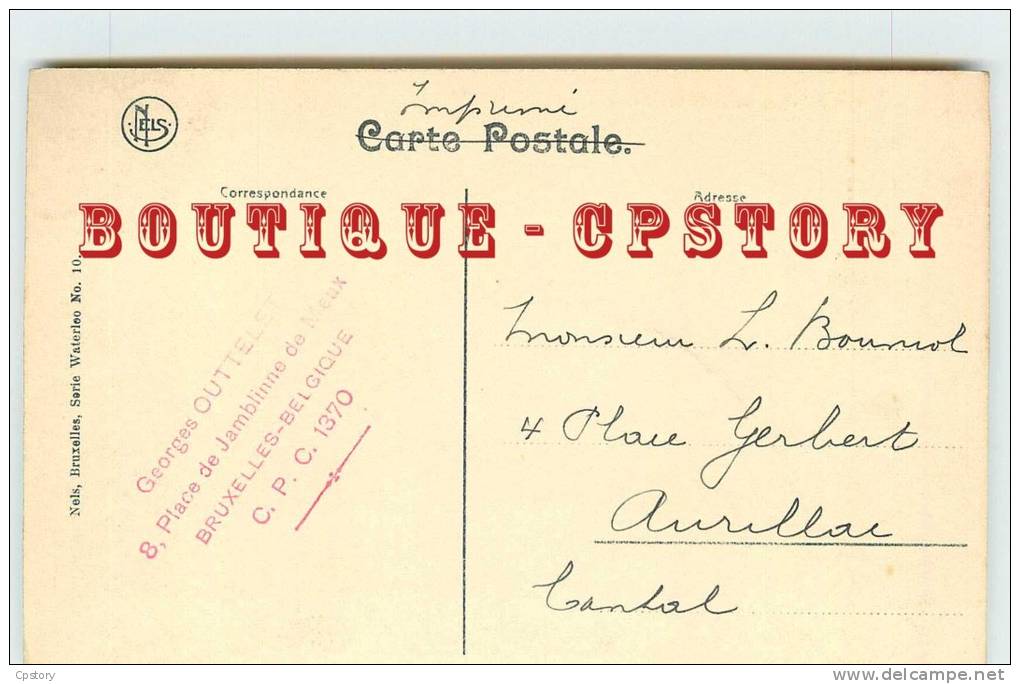 Imprimé
NELS
Carte Postale.
Correspondance
Adresse
BOUTIQUE - CPSTORY
Nels, Bruxelles, Serie Waterloo No. 10.
Georges OUTTELET
8, Place de Jamblinne de Meux
BRUXELLES-BELGIQUE
C. P. C. 1370
Monsieur L. Bouniol
4 Place Gerbert
Aurillac
Cantal
Cpstory
www.delcampe.net